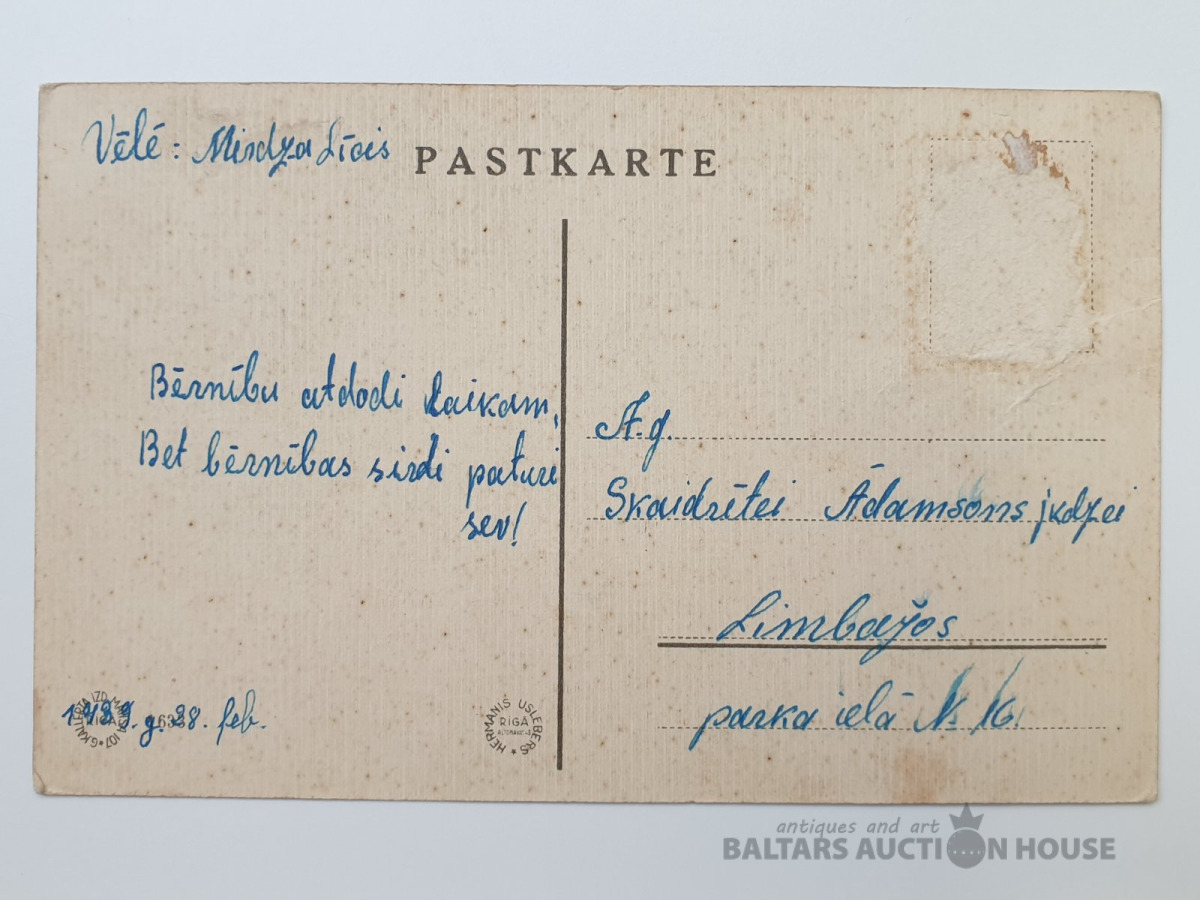 Vēlē: Mirdza Līcis
PASTKARTE
Bērnību atdodi laikam,
Bet bērnības sirdi paturi
sev!
A.g.
Skaidrītei Ādamsons jkdzei
Limbažos
parka ielā № 16.
g. 28. feb.
HERMANIS USLEBERS
RIGA
antiques and art
BALTARS AUCTION HOUSE